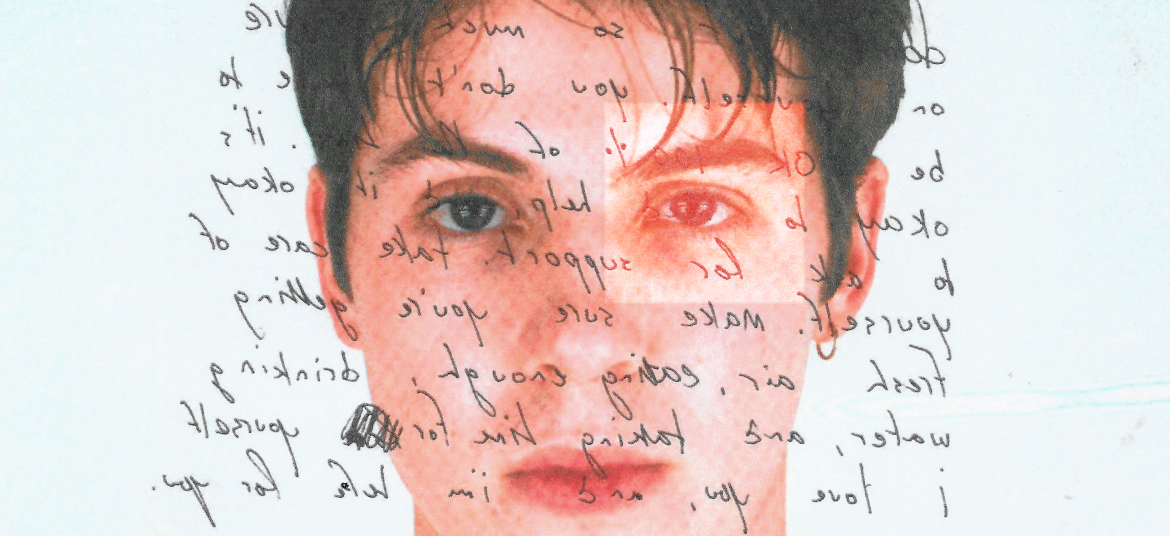 do so much
or yourself. you don't to
be OK 100% of it's
okay to help it okay
to ask for support. take care of
yourself. Make sure you're getting
fresh air, eating enough, drinking
water, and taking time for yourself
i love you, and i'm here for you.